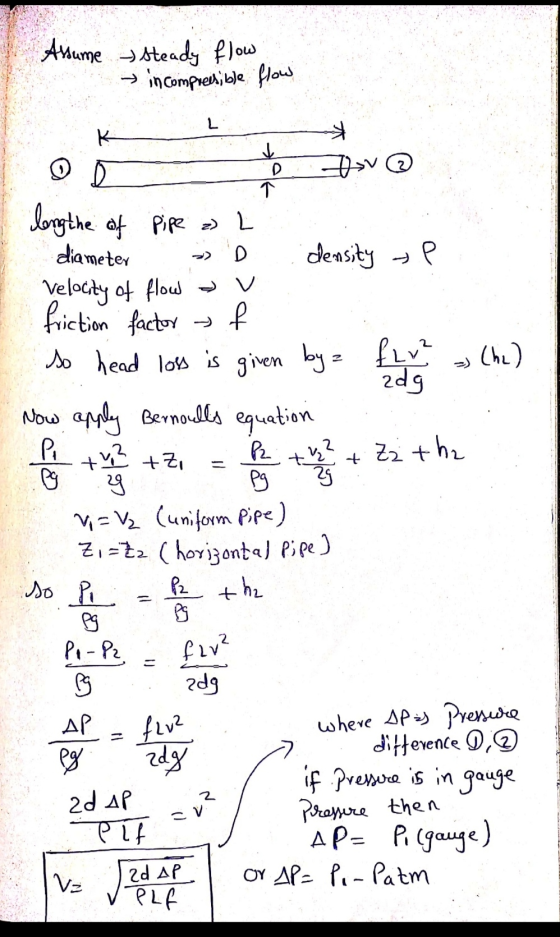 Assume → steady flow
→ incompressible flow
L
① D D → V ②
lengthe of pipe ⇒ L
diameter ⇒ D density → ρ
velocity of flow → V
friction factor → f
so head loss is given by = fLv²/2dg ⇒ (hL)
Now apply Bernoulls equation
P₁/ρg + v₁²/2g + Z₁ = P₂/ρg + v₂²/2g + Z₂ + hL
v₁ = v₂ (uniform pipe)
Z₁ = Z₂ (horizontal pipe)
so P₁/ρg = P₂/ρg + hL
P₁ - P₂/ρg = fLv²/2dg
ΔP/ρg = fLv²/2dg
2d ΔP/ρLf = v²
V = √(2d ΔP/ρLf)
where ΔP ⇒ Pressure
difference ①, ②
if pressure is in gauge
pressure then
ΔP = P₁ (gauge)
or ΔP = P₁ - Patm